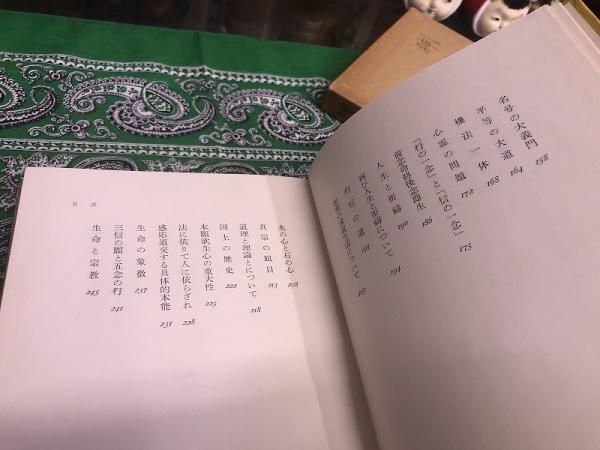 名号の大義門 158
平等の大道 164
機法一体 168
心霊の問題 172
「行の一念」と「信の一念」 175
前念命終後念即生 186
人生と祈禱 190
再び人生と祈禱について 194
行信の道 191
195
水の心と石の心 208
真宗の眼目 213
道理と理論とについて 218
国土の歴史 222
本願欲生心の重大性 225
法に依りて人に依らざれ 228
感応道交する具体的本能 231
生命の象徴 237
三信の願と五念の行 241
生命と宗教 245
目次